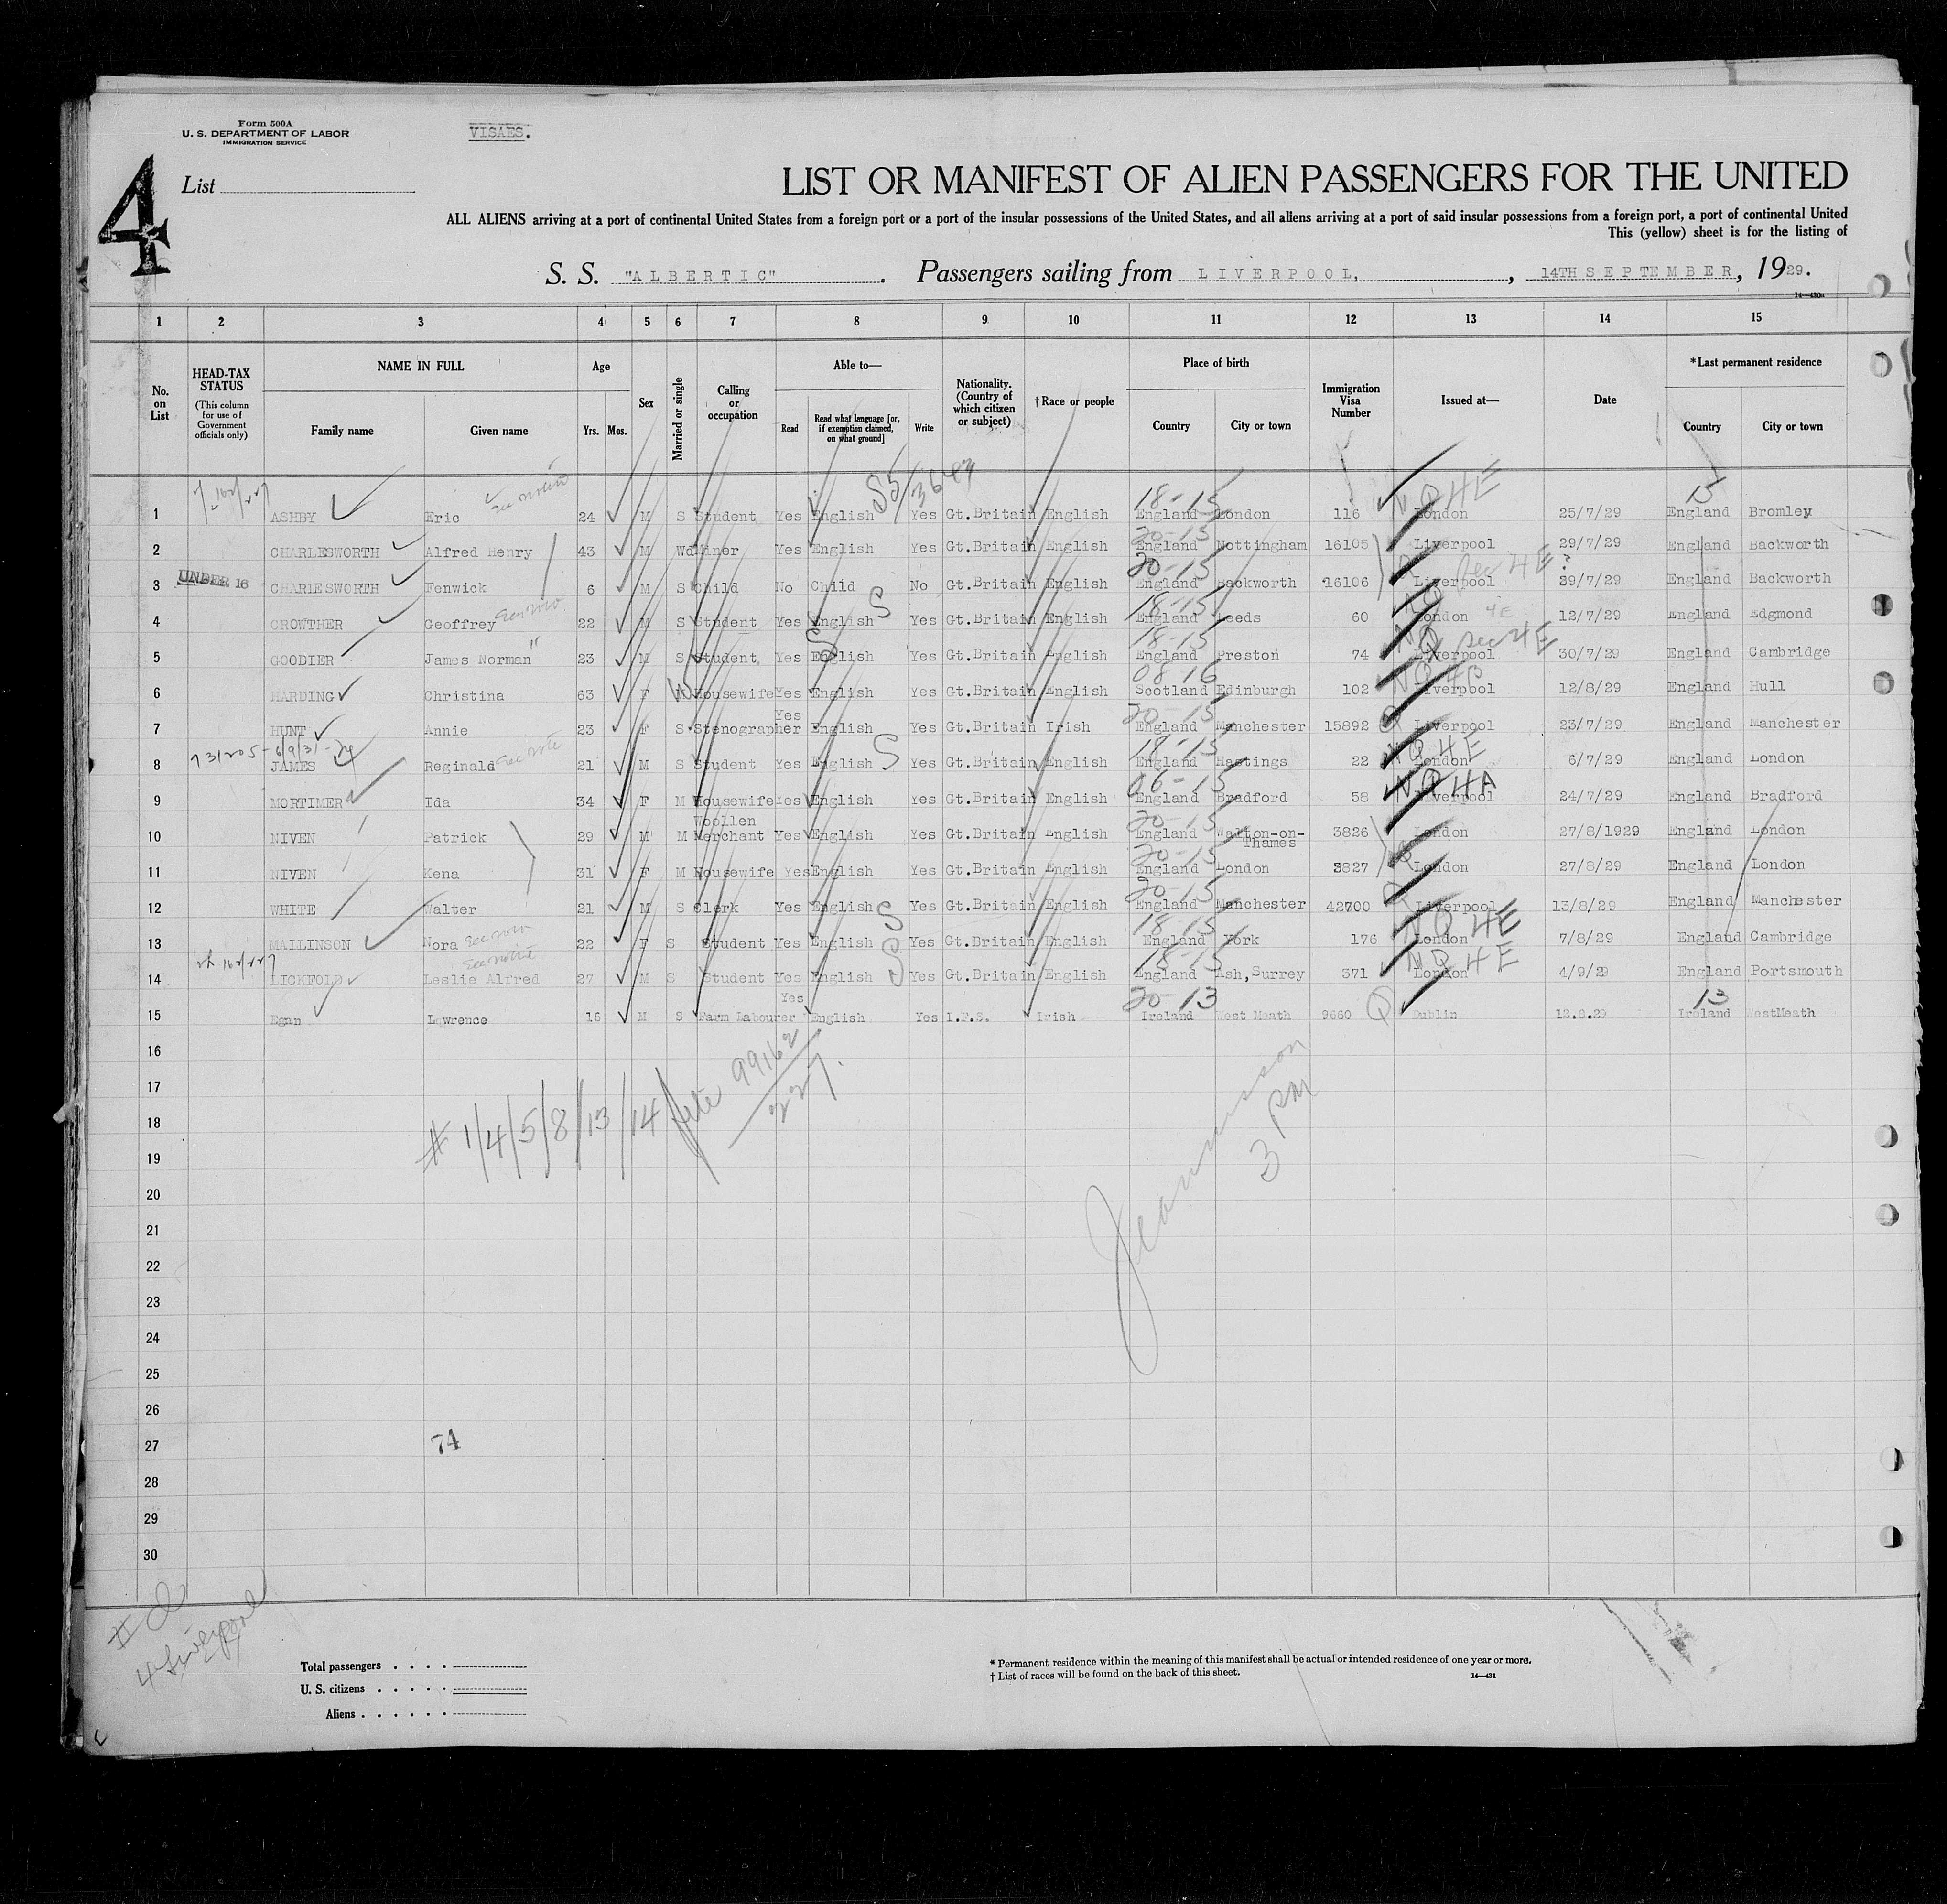 Form 500A
U. S. DEPARTMENT OF LABOR
IMMIGRATION SERVICE
VISAES.
4
List
LIST OR MANIFEST OF ALIEN PASSENGERS FOR THE UNITED
ALL ALIENS arriving at a port of continental United States from a foreign port or a port of the insular possessions of the United States, and all aliens arriving at a port of said insular possessions from a foreign port, a port of continental United
This (yellow) sheet is for the listing of
S. S. "ALBERTIC". Passengers sailing from LIVERPOOL, , 14TH SEPTEMBER, 1929.
14—430a
1 2 3 4 5 6 7 8 9 10 11 12 13 14 15
No. on List
HEAD-TAX STATUS (This column for use of Government officials only)
NAME IN FULL
Family name Given name
Age
Yrs. Mos.
Sex
Married or single
Calling or occupation
Able to—
Read Read what language [or, if exemption claimed, on what ground] Write
Nationality. (Country of which citizen or subject)
†Race or people
Place of birth
Country City or town
Immigration Visa Number
Issued at—
Date
*Last permanent residence
Country City or town
S5/3643
see note 18-15 NQ 4E 15
1 ASHBY Eric 24 M S Student Yes English Yes Gt.Britain English England London 116 London 25/7/29 England Bromley
20-15
2 CHARLESWORTH Alfred Henry 43 M Wd Miner Yes English Yes Gt.Britain English England Nottingham 16105 Liverpool 29/7/29 England Backworth
UNDER 16 20-15 Sec 4E?
3 CHARLESWORTH Fenwick 6 M S Child No Child No Gt.Britain English England Backworth 16106 Liverpool 29/7/29 England Backworth
see note S 18-15 4E
4 CROWTHER Geoffrey 22 M S Student Yes English Yes Gt.Britain English England Leeds 60 London 12/7/29 England Edgmond
" S 18-15 NQ Sec 4E
5 GOODIER James Norman 23 M S Student, Yes English Yes Gt.Britain English England Preston 74 Liverpool 30/7/29 England Cambridge
08-16 NQ
6 HARDING Christina 63 F W Housewife Yes English Yes Gt.Britain English Scotland Edinburgh 102 Liverpool 12/8/29 England Hull
20-15 Q
7 HUNT Annie 23 F S Stenographer Yes English Yes Gt.Britain Irish England Manchester 15892 Liverpool 23/7/29 England Manchester
731205-6/9/31 see note S 18-15 NQ 4E
8 JAMES Reginald 21 M S Student Yes English Yes Gt.Britain English England Hastings 22 London 6/7/29 England London
06-15 NQ 4A
9 MORTIMER Ida 34 F M Housewife Yes English Yes Gt.Britain English England Bradford 58 Liverpool 24/7/29 England Bradford
20-15
10 NIVEN Patrick 29 M M Woollen Merchant Yes English Yes Gt.Britain English England Walton-on-Thames 3826 London 27/8/1929 England London
20-15 Q
11 NIVEN Kena 31 F M Housewife Yes English Yes Gt.Britain English England London 3827 London 27/8/29 England London
20-15 Q
12 WHITE Walter 21 M S Clerk Yes English Yes Gt.Britain English England Manchester 42700 Liverpool 13/8/29 England Manchester
see note S 18-15 NQ 4E
13 MALLINSON Nora 22 F S Student Yes English Yes Gt.Britain English England York 176 London 7/8/29 England Cambridge
see note S 18-15 NQ 4E
14 LICKFOLD Leslie Alfred 27 M S Student Yes English Yes Gt.Britain English England Ash, Surrey 371 London 4/9/29 England Portsmouth
20-13 Q 13
15 Egan Lawrence 16 M S Farm Labourer Yes English Yes I.F.S. Irish Ireland West Meath 9660 Dublin 12.8.29 Ireland WestMeath
16
17
18
# 1/4/5/8/13/14 file 99162/227.
3 PM
19
20
21
22
23
24
25
26
27 74
28
29
30
4 Liverpool
Total passengers
U. S. citizens
Aliens
* Permanent residence within the meaning of this manifest shall be actual or intended residence of one year or more.
† List of races will be found on the back of this sheet.
14—431